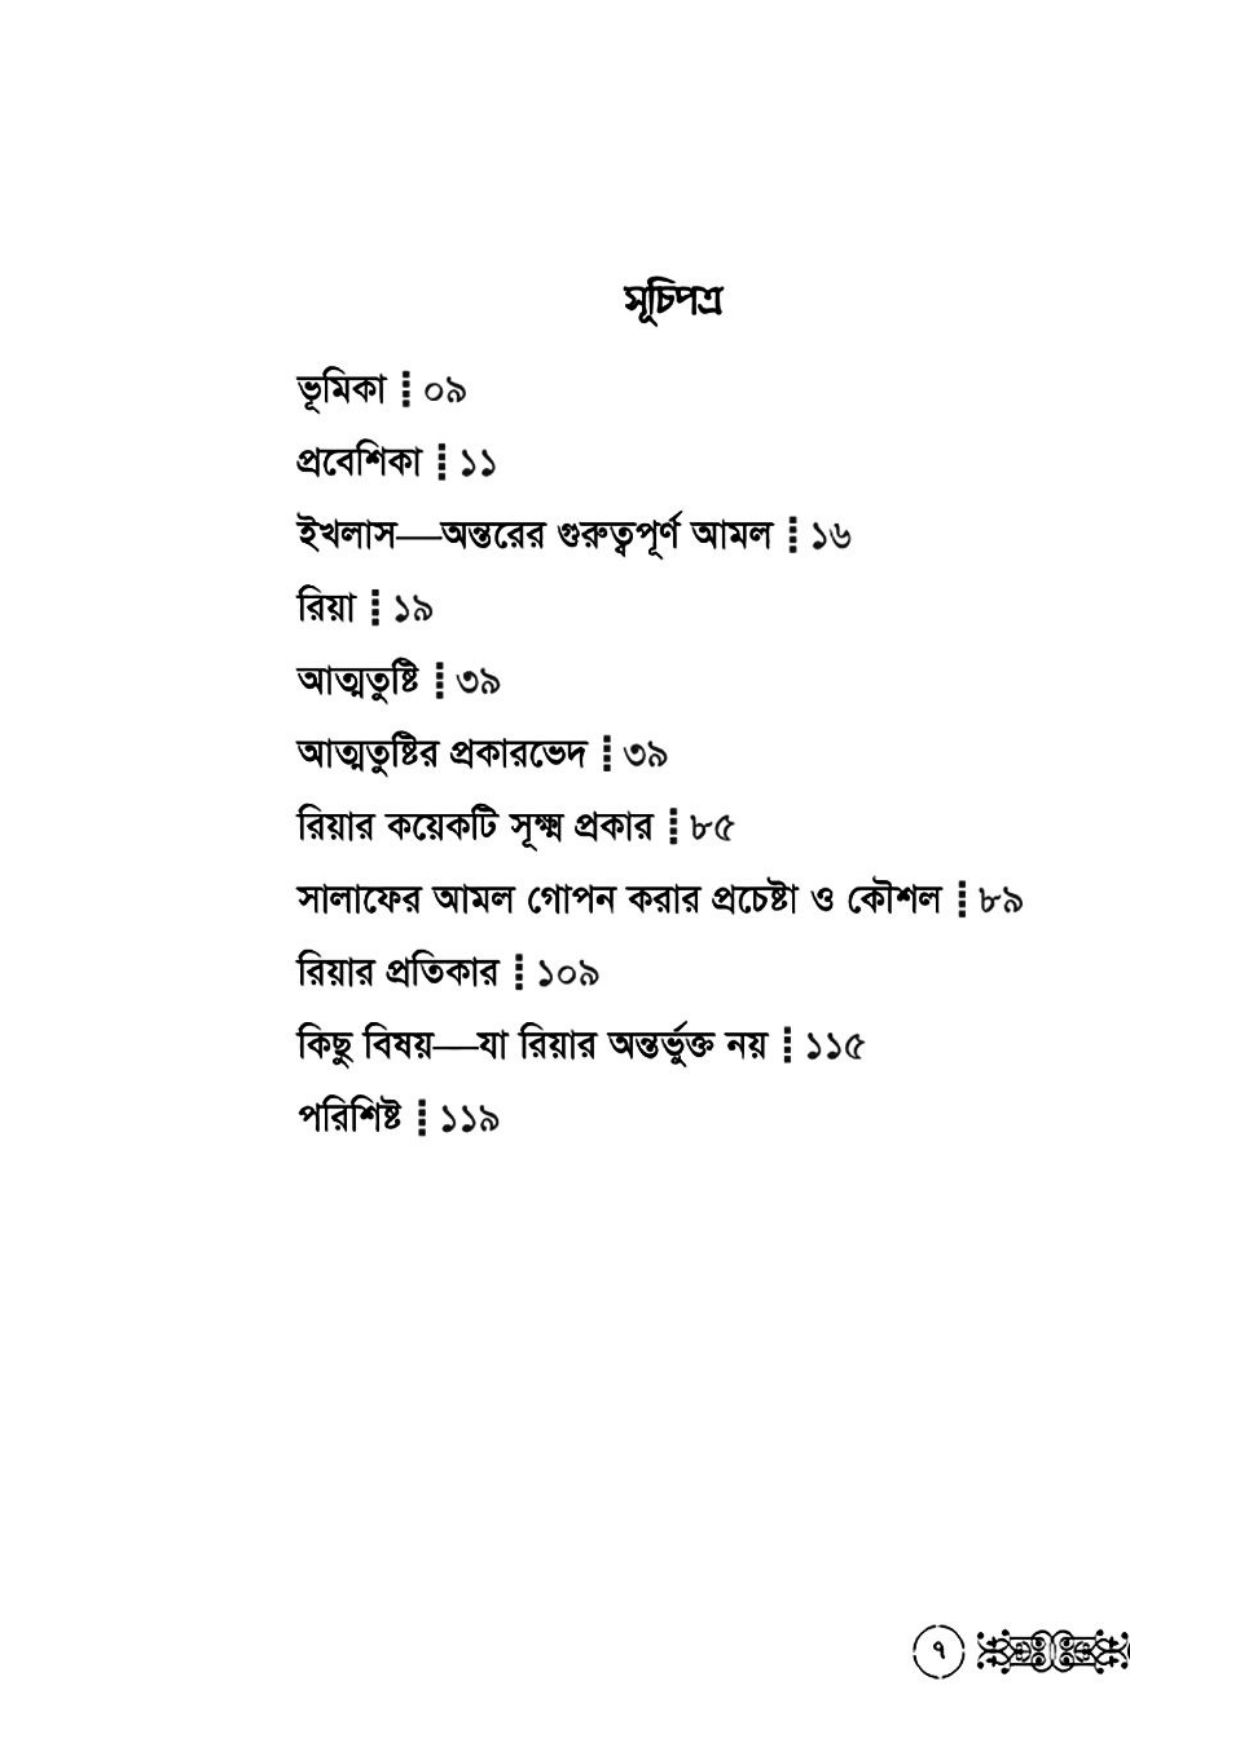 সূচিপত্র
ভূমিকা ⁞ ০৯
প্রবেশিকা ⁞ ১১
ইখলাস—অন্তরের গুরুত্বপূর্ণ আমল ⁞ ১৬
রিয়া ⁞ ১৯
আত্মতুষ্টি ⁞ ৩৯
আত্মতুষ্টির প্রকারভেদ ⁞ ৩৯
রিয়ার কয়েকটি সূক্ষ্ম প্রকার ⁞ ৮৫
সালাফের আমল গোপন করার প্রচেষ্টা ও কৌশল ⁞ ৮৯
রিয়ার প্রতিকার ⁞ ১০৯
কিছু বিষয়—যা রিয়ার অন্তর্ভুক্ত নয় ⁞ ১১৫
পরিশিষ্ট ⁞ ১১৯
৭